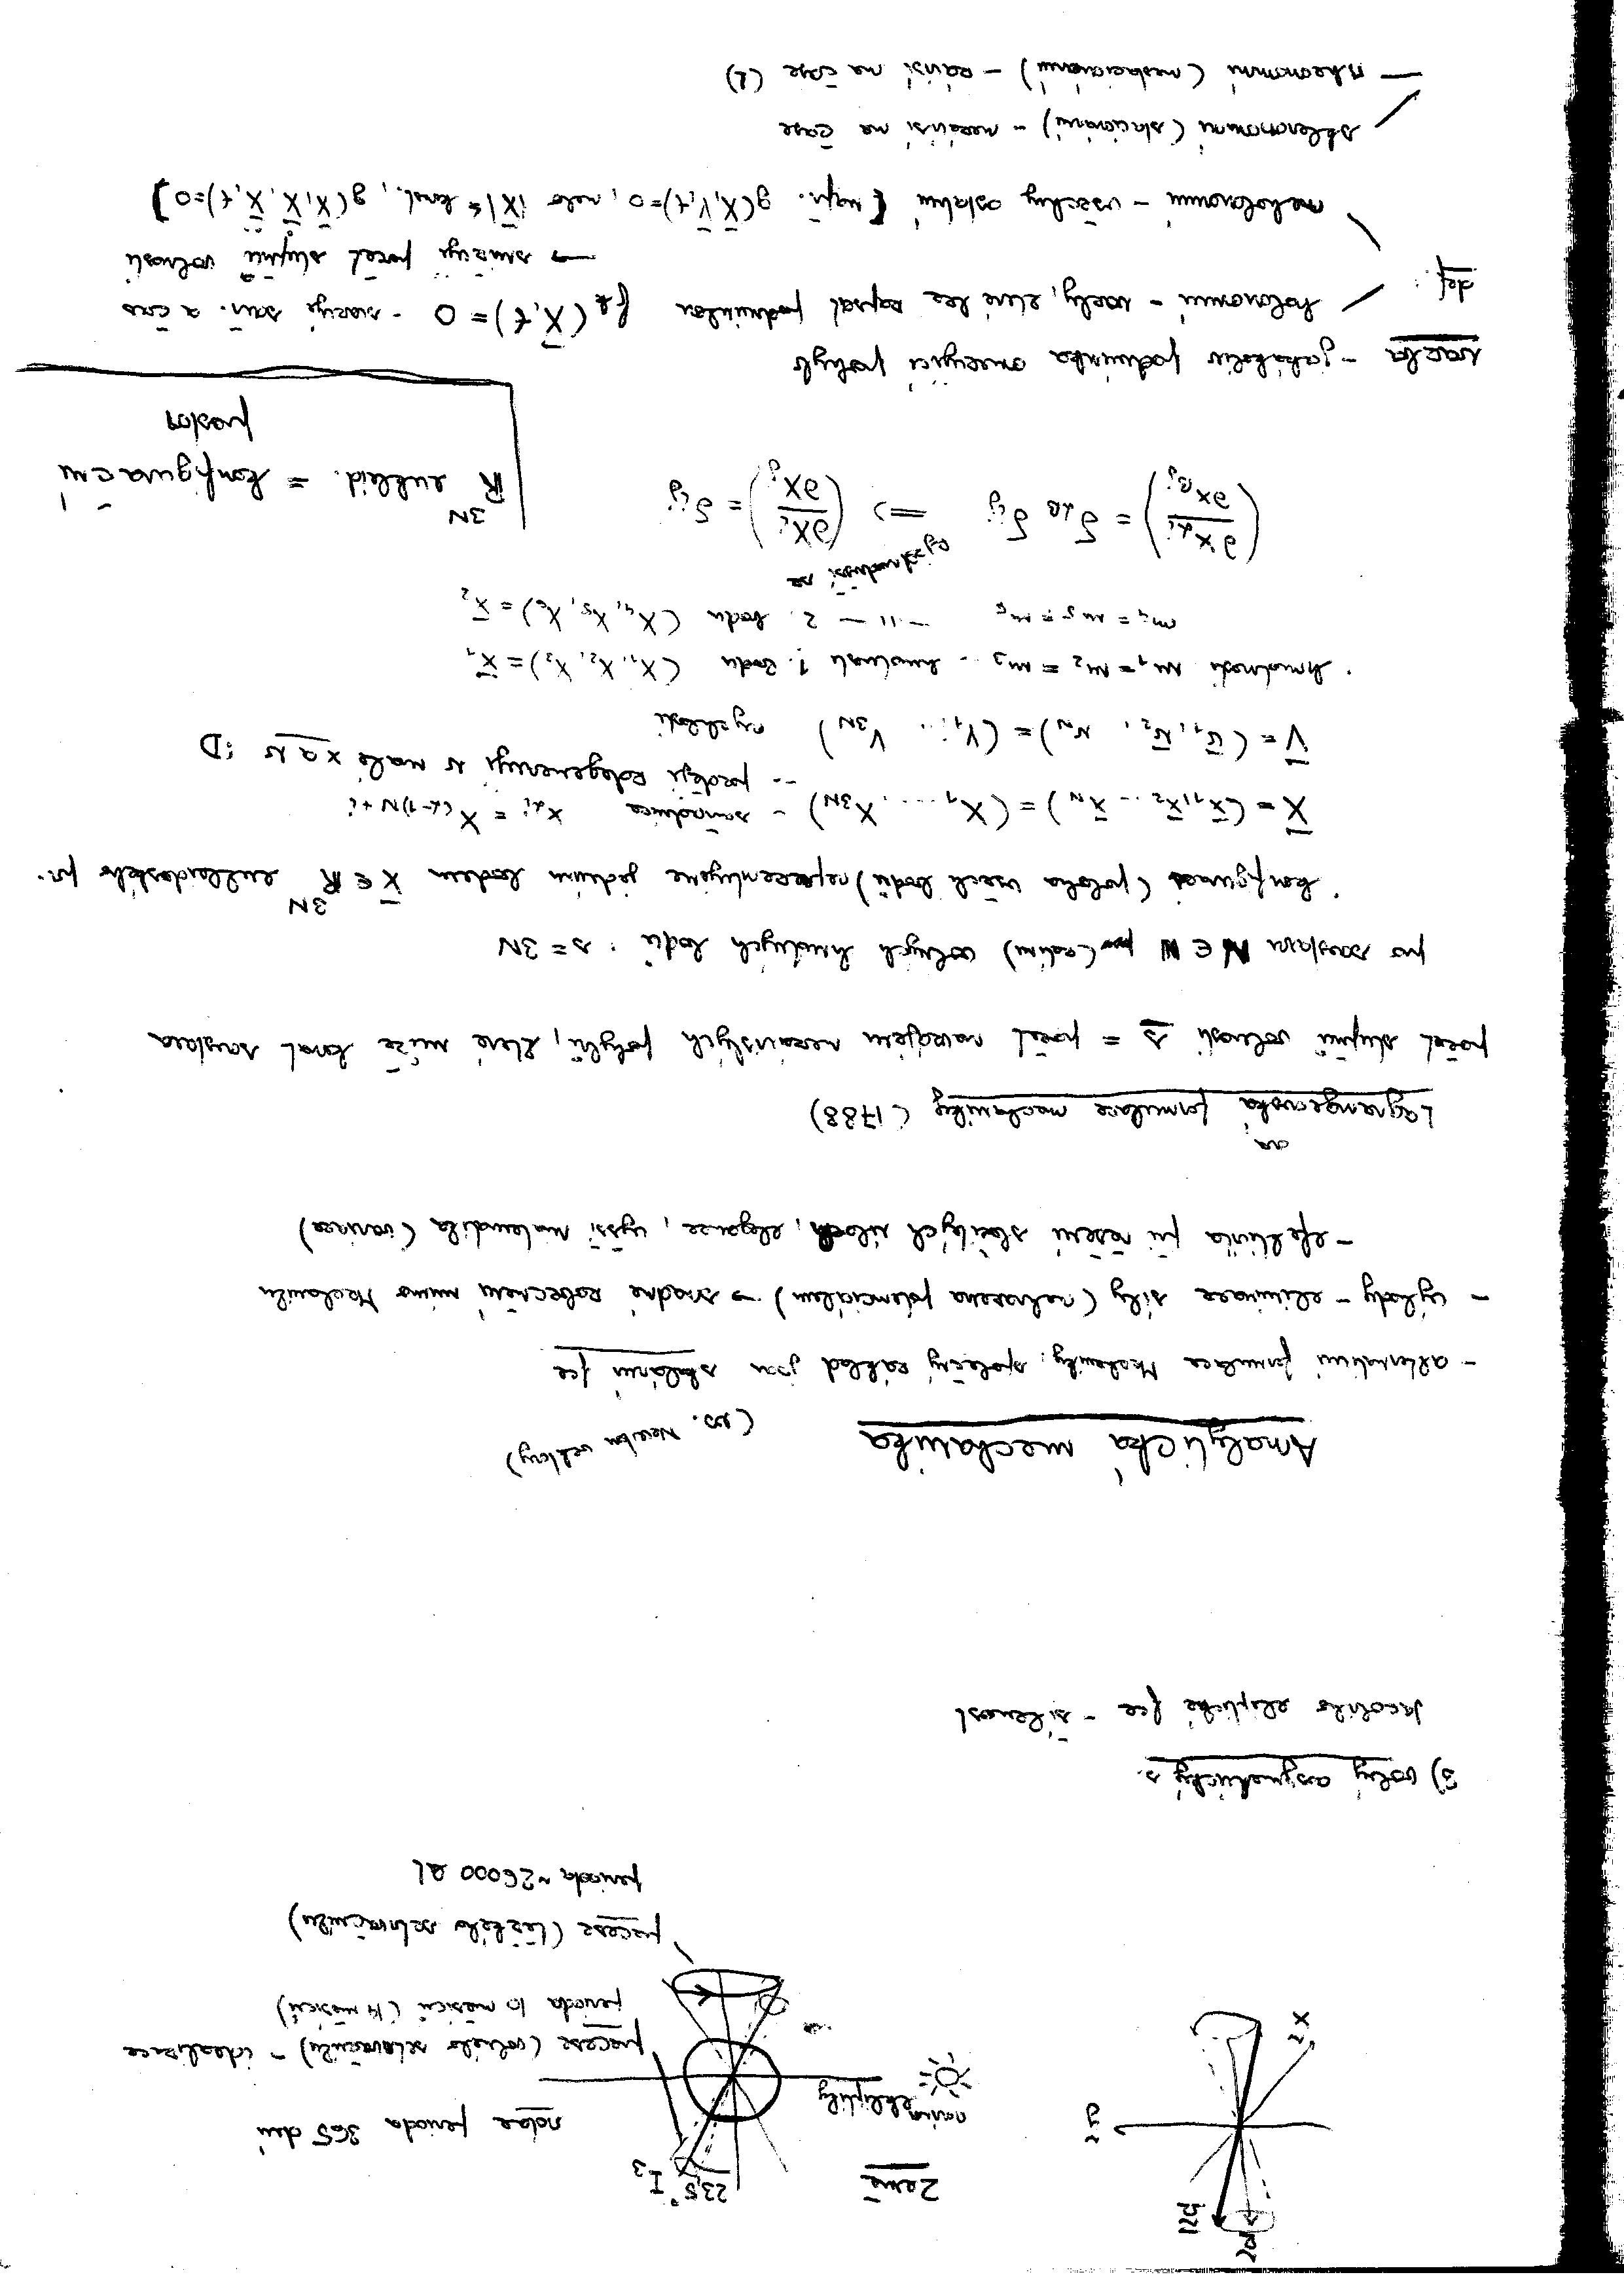 Země
23,5° I₃
rovina ekliptiky
rotace perioda 365 dní
precese (volného setrvačníku) - idealizace
perioda 10 měsíců (14 měsíců)
precese (těžkého setrvačníku)
perioda ~26000 let
3) volný asymetrický s.
Jacobiho eliptické fce - šílenost
Analytická mechanika (vs. Newton vektory)
- alternativní formulace Mechaniky, společný základ jsou skalární fce
- výhody - eliminace síly (nahrazena potenciálem) → snadné zobecnění mimo Mechaniku
- efektivita při řešení složitých úloh, elegance, vyšší matematika (variace)
Lagrangeovská formulace mechaniky (1788)
počet stupňů volnosti s = počet navzájem nezávislých pohybů, které může konat soustava
pro soustavu N ∈ ℕ (volných) hmotných bodů : s = 3N
konfiguraci (poloha všech bodů) reprezentujeme jedním bodem X ∈ ℝ^3N euklidovského pr.
X = (x₁, x₂ ... x_N) = (X₁ .... X_3N) - souřadnice x_αi = X_(α-1)N+i
V = (v₁, v₂, v_N) = (V₁, ... V_3N) rychlosti
hmotnosti m₁ = m₂ = m₃ .. hmotnost 1. bodu (X₁, X₂, X₃) = x₁
m₄ = m₅ = m₆ -"- 2. bodu (X₄, X₅, X₆) = x₂
(∂x_αi/∂x_βj) = δ_αβ δ_ij ⇒ (∂X_i/∂X_j) = δ_ij
zjednodušší se
ℝ^3N euklid. = konfigurační
prostor
vazba - jakákoliv podmínka omezující pohyb
def: holonomní - vazby, které lze zapsat podmínkou f_k(X,t) = 0 - svazuje souř. a čas
→ snižuje počet stupňů volnosti
neholonomní - všechny ostatní [např. g(X,V,t)=0, nebo |Ẋ| = konst., g(X,Ẋ,Ẍ,t)=0]
skleronomní (stacionární) - nezávisí na čase
rheonomní (nestacionární) - závisí na čase (t)